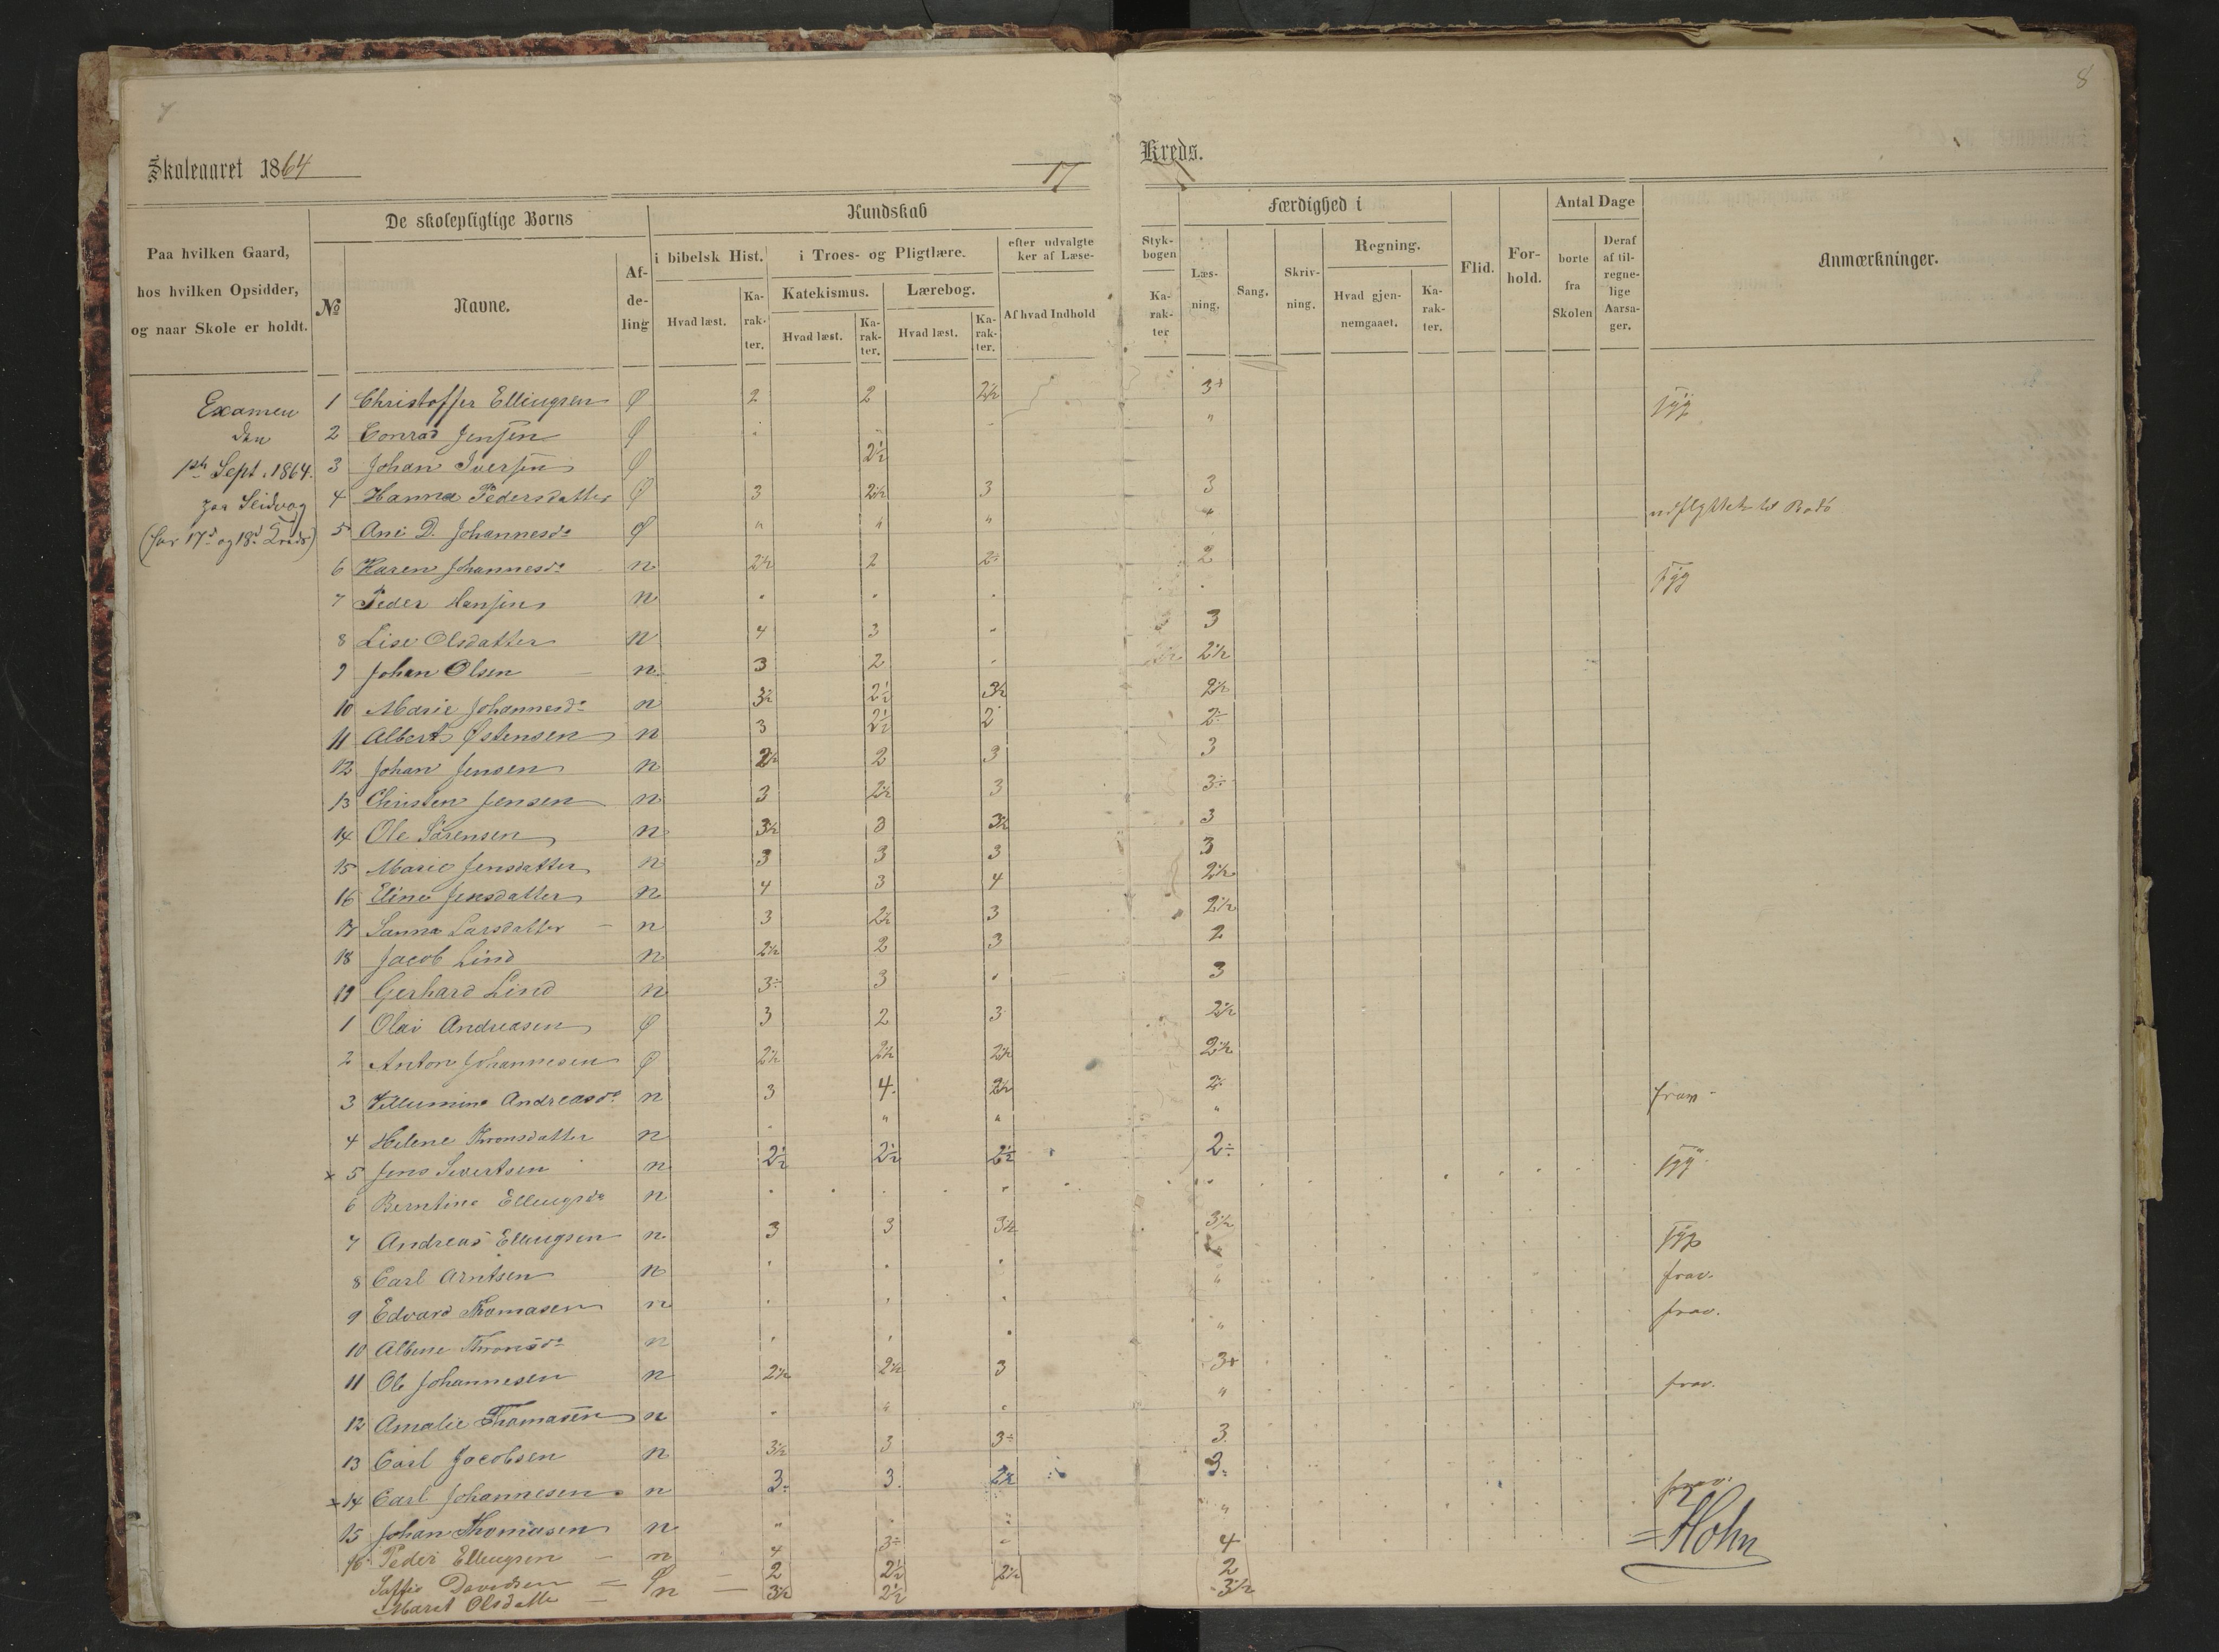 7
8
Skoleaaret 1864
17
Kreds.
Paa hvilken Gaard, hos hvilken Opsidder, og naar Skole er holdt.
De skolepligtige Børns
№
Navne.
Af-de-ling
Kundskab
i bibelsk Hist.
Hvad læst.
Ka-rak-ter.
i Troes- og Pligtlære.
Katekismus.
Hvad læst.
Ka-rak-ter.
Lærebog.
Hvad læst.
Ka-rak-ter.
efter udvalgte
ker af Læse-
Af hvad Indhold
Styk-
bogen
Ka-rak-ter
Færdighed i
Læs-ning.
Sang.
Skriv-ning.
Regning.
Hvad gjen-nemgaaet.
Ka-rak-ter.
Flid.
For-hold.
Antal Dage
borte fra Skolen
Deraf af til-regne-lige Aarsa-ger.
Anmærkninger.
Examen
den
1ste Sept. 1864.
(for 17d og 18d Kreds)
1 Christoffer Ellingsen Ø 2 2 2½ 3+ syg
2 Conrad Jensen Ø "
3 Johan Iversen Ø 2½
4 Hanna Pedersdatter Ø 3 2½ 3 3
5 Ane D. Johannesd. Ø " " " " udflyttet til Bodö
6 Karen Johannesd. n 2½ 2 2÷ 2
7 Peder Hansen n syg
8 Lise Olsdatter n 4 3 3
9 Johan Olsen n 3 2 2½
10 Marie Johannesd. n 3½ 2½ 3½ 2½
11 Albert Østensen n 3 2½ 2 2÷
12 Johan Jensen n 2½ 2 3 3
13 Christen Jensen n 3 2½ 3 3÷
14 Ole Sørensen n 3½ 3 3½ 3
15 Marie Jensdatter n 3 3 3 3
16 Eline Jensdatter n 4 3 4 2½
17 Sanna Larsdatter n 3 2½ 3 2½
18 Jacob Lind n 2½ 2 3 2
19 Gerhard Lind n 3÷ 3 3
1 Olai Andreasen Ø 3 2 3 2½
2 Anton Johannesen Ø 2½ 2½ 2½ 2½
3 Villumine Andreasd. n 3 4 2½ 2
4 Helene Thronsdatter n " " " frav.
× 5 Jens Sivertsen n 2½ 2½ 2½ 2÷
6 Berntine Ellingsd. n syg
7 Andreas Ellingsen n 3 3 3½ 3½
8 Carl Arntsen n " syg
9 Edvard Thomasen n frav.
10 Albine Thronsd. n " frav.
11 Ole Johannesen n 2½ 2½ 3 3+
12 Amalie Thomasen n " frav.
13 Carl Jacobsen n 3½ 3 3÷ 3
× 14 Carl Johannesen n 3÷ 3 2½ 3÷
15 Johan Thomasen n " " frav.
16 Peder Ellingsen n 4 3÷ 4
Davidsen Ø 2 2½ 2½ 2
Maret Olsdatte n 3½ 2½ 3½
Hohn